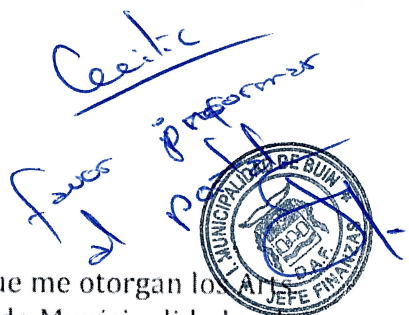 Cecilia
favor informar
al
I. MUNICIPALIDAD DE BUIN
D.A.F.
JEFE FINANZAS
ue me otorgan los Arts